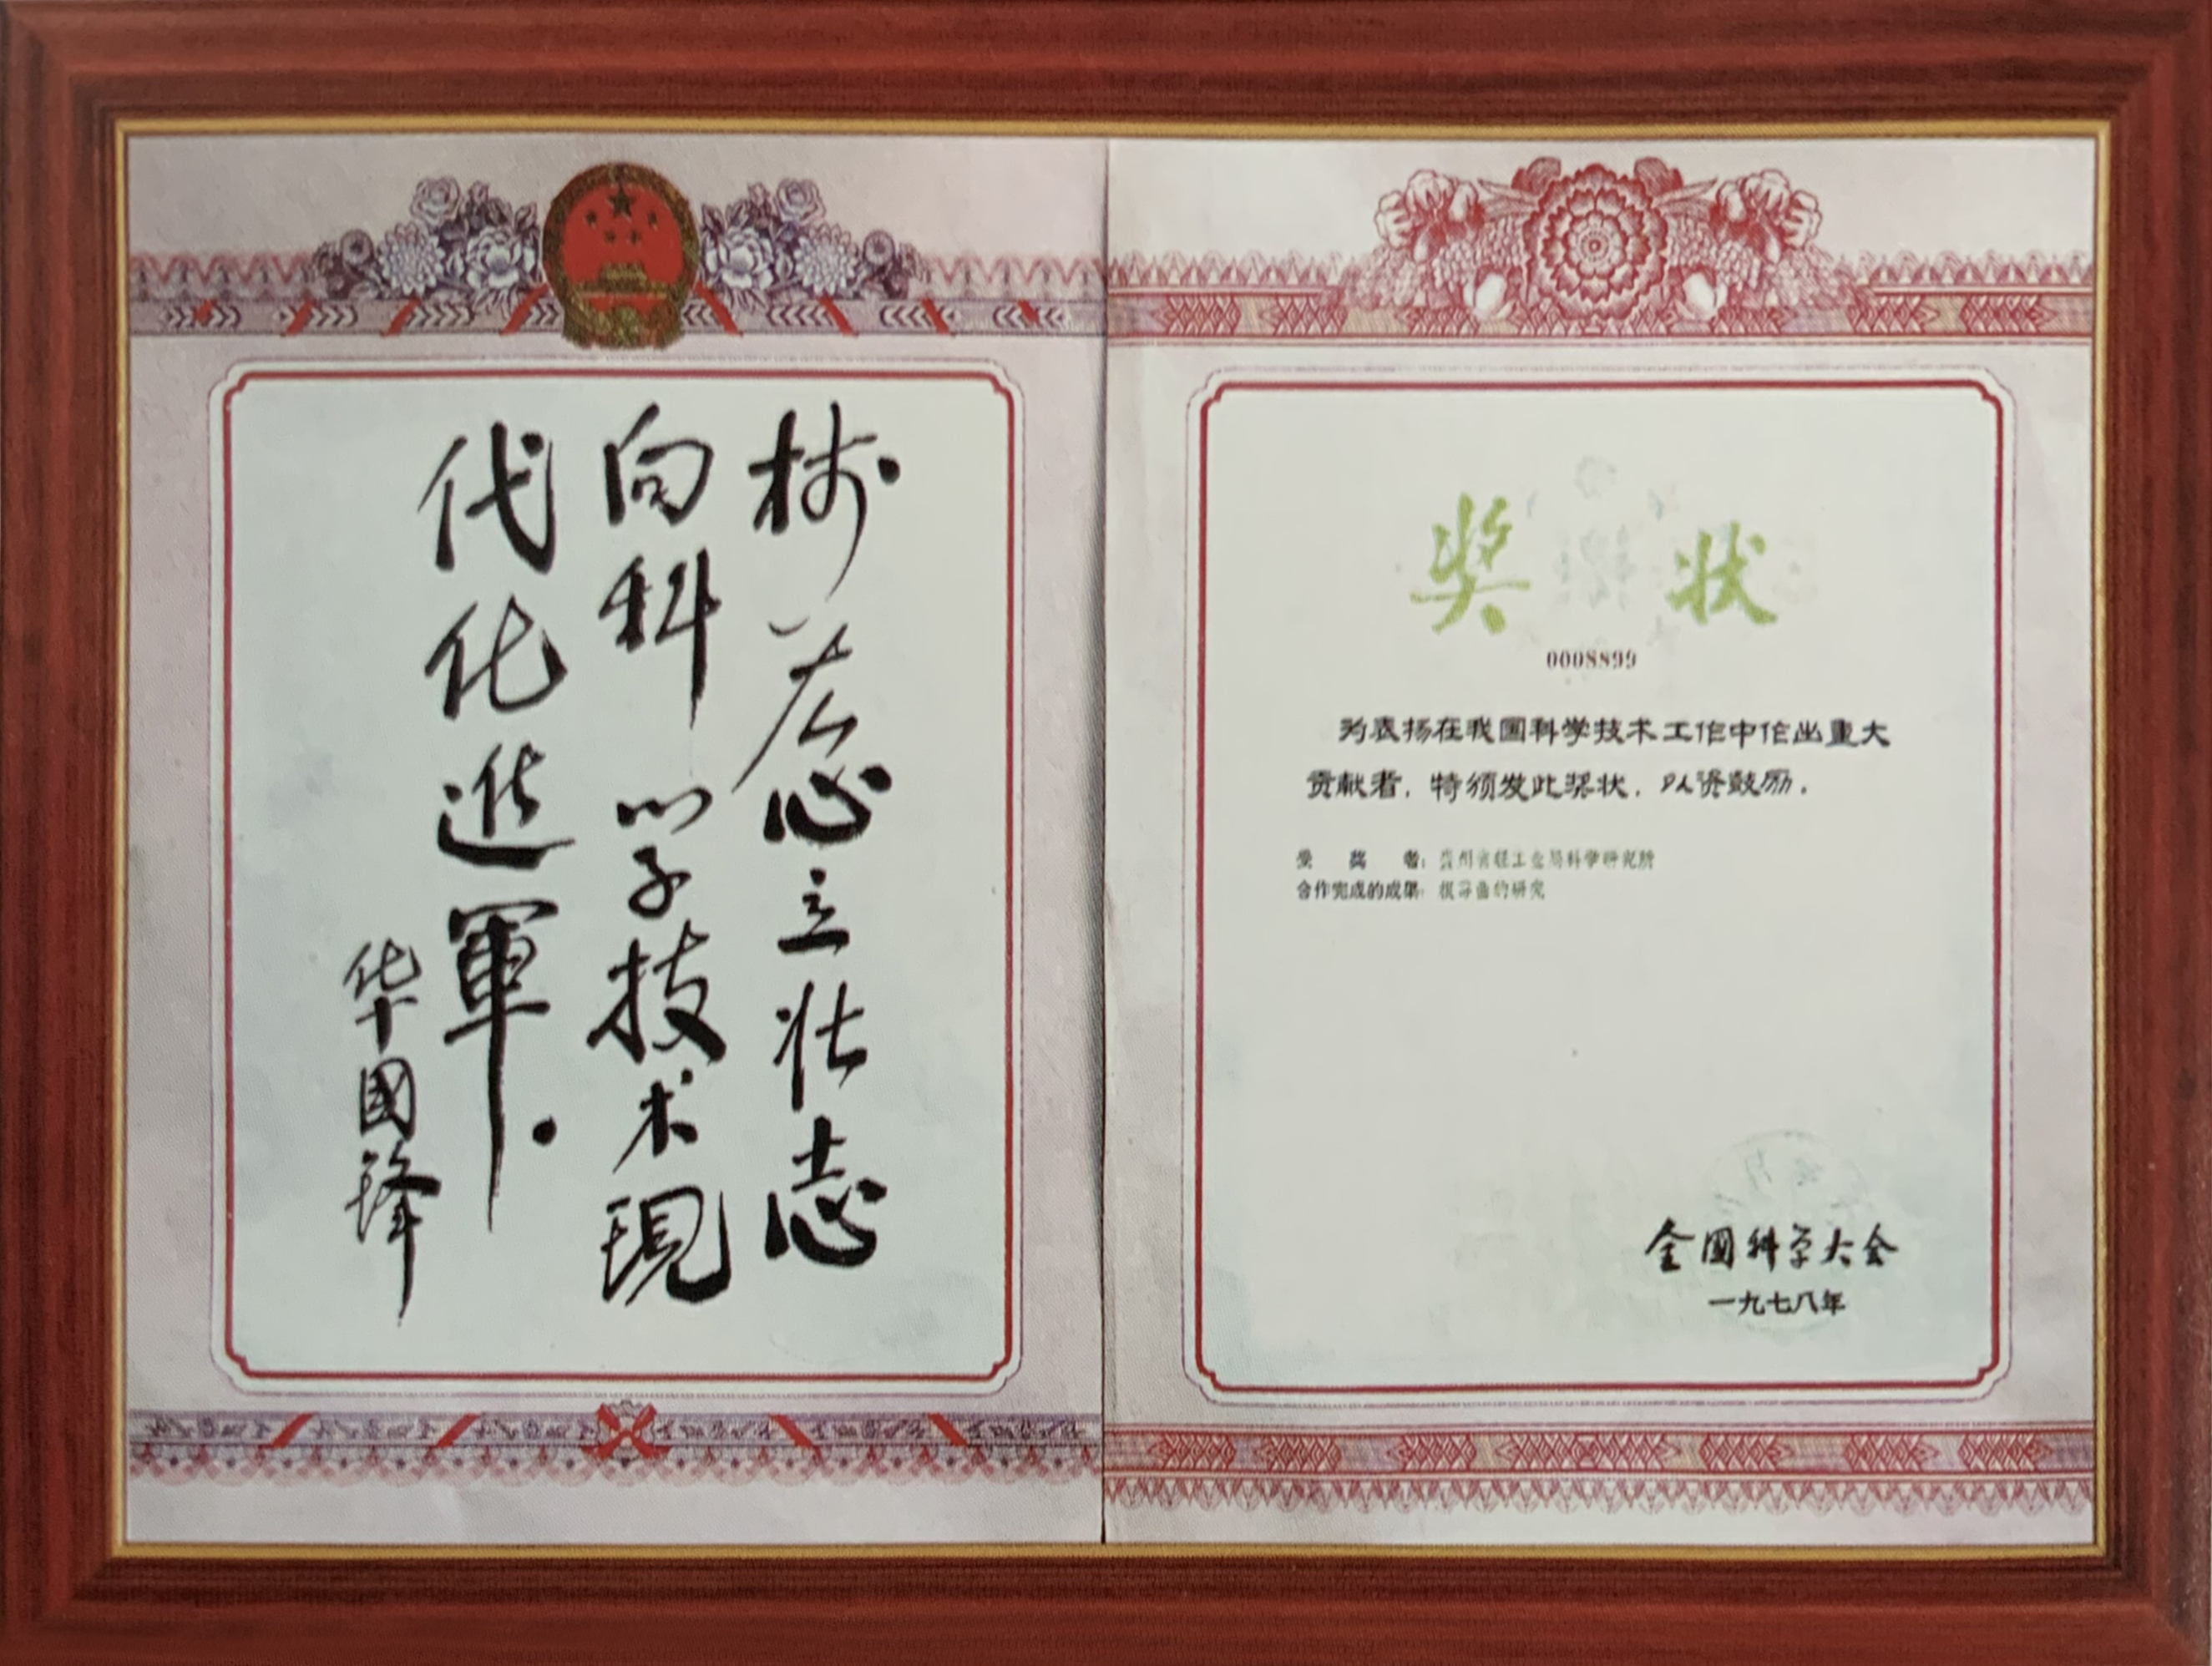 树雄心立壮志
向科学技术現
代化進軍.
华國锋
奖状
0008899
为表扬在我国科学技术工作中作出重大
贡献者，特颁发此奖状，以资鼓励。
受奖者：贵州省轻工业局科学研究所
合作完成的成果：根霉曲的研究
全國科学大会
一九七八年